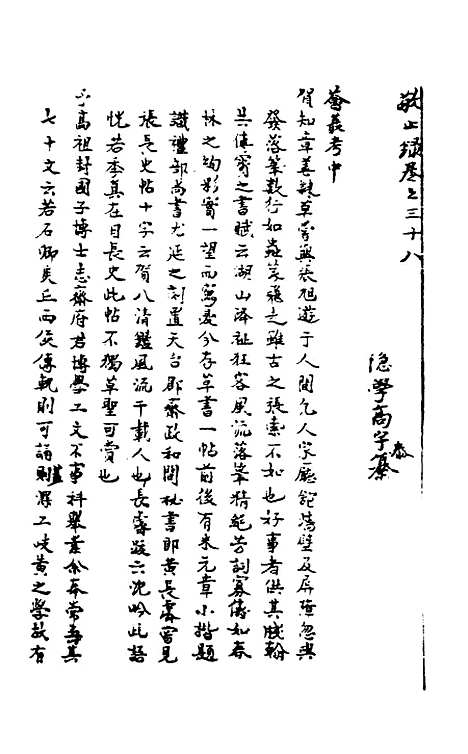 敬止錄卷之三十八
隱學高宇泰纂
薈蕞考中
賀知章善隸草常與張旭遊于人間凡人家廳館墻壁及屏障忽興
發落筆數行如蟲篆飛走雖古之張索不如也好事者供其牋翰
共傳寶之書賦云湖山降祉狂客風流落筆精絶芳詞寡儔如春
林之絢彩實一望而寫憂今存草書一帖前後有米元章小楷題
識禮部尚書尤延之刻置天台郡齋政和間秘書郎黃長睿曾見
張長史帖十字云賀八清鑑風流千載人也長睿跋云沈吟此語
恍若季真在目長史此帖不獨草聖可賞也
高祖封國子博士志齋府君博學工文不事科舉業余奉常為其
七十文云若石卿吳丘而矦傳軌則可誦則深工岐黃之學故有